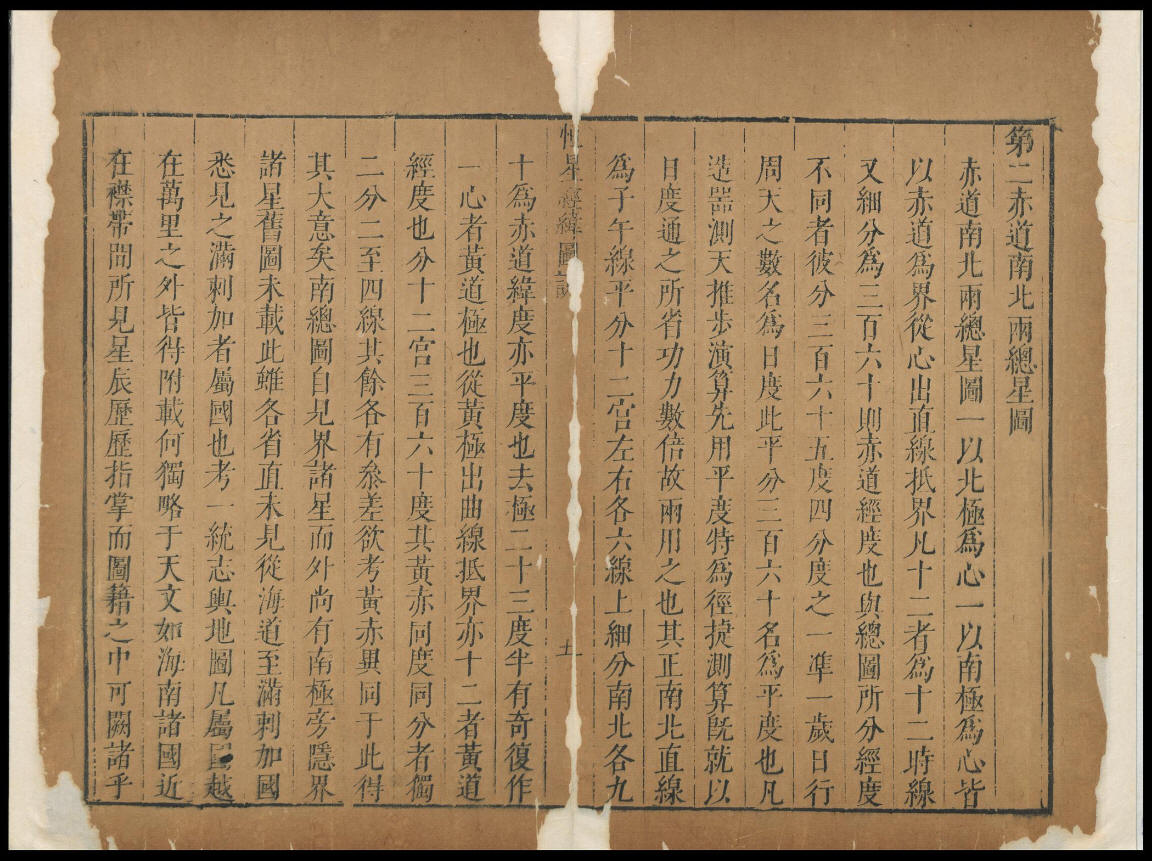 第二赤道南北兩總星圖
赤道南北兩總星圖一以北極爲心一以南極爲心皆
以赤道爲界從心出直線抵界凡十二者爲十二時線
又細分爲三百六十則赤道經度也與總圖所分經度
不同者彼分三百六十五度四分度之一凖一歲日行
周天之數名爲日度此平分三百六十名爲平度也凡
造器測天推步演算先用平度特爲徑捷測算旣就以
日度通之所省功力數倍故兩用之也其正南北直線
爲子午線平分十二宮左右各六線上細分南北各九
恒星經緯圖說
五
十爲赤道緯度亦平度也去極二十三度半有奇復作
一心者黃道極也從黃極出曲線抵界亦十二者黃道
經度也分十二宮三百六十度其黃赤同度同分者獨
二分二至四線其餘各有叅差欲考黃赤異同于此得
其大意矣南總圖自見界諸星而外尚有南極旁隱界
諸星舊圖未載此雖各省直未見從海道至滿剌加國
悉見之滿剌加者屬國也考一統志輿地圖凡屬國越
在萬里之外皆得附載何獨略于天文如海南諸國近
在襟帶間所見星辰歷歷指掌而圖籍之中可闕諸乎